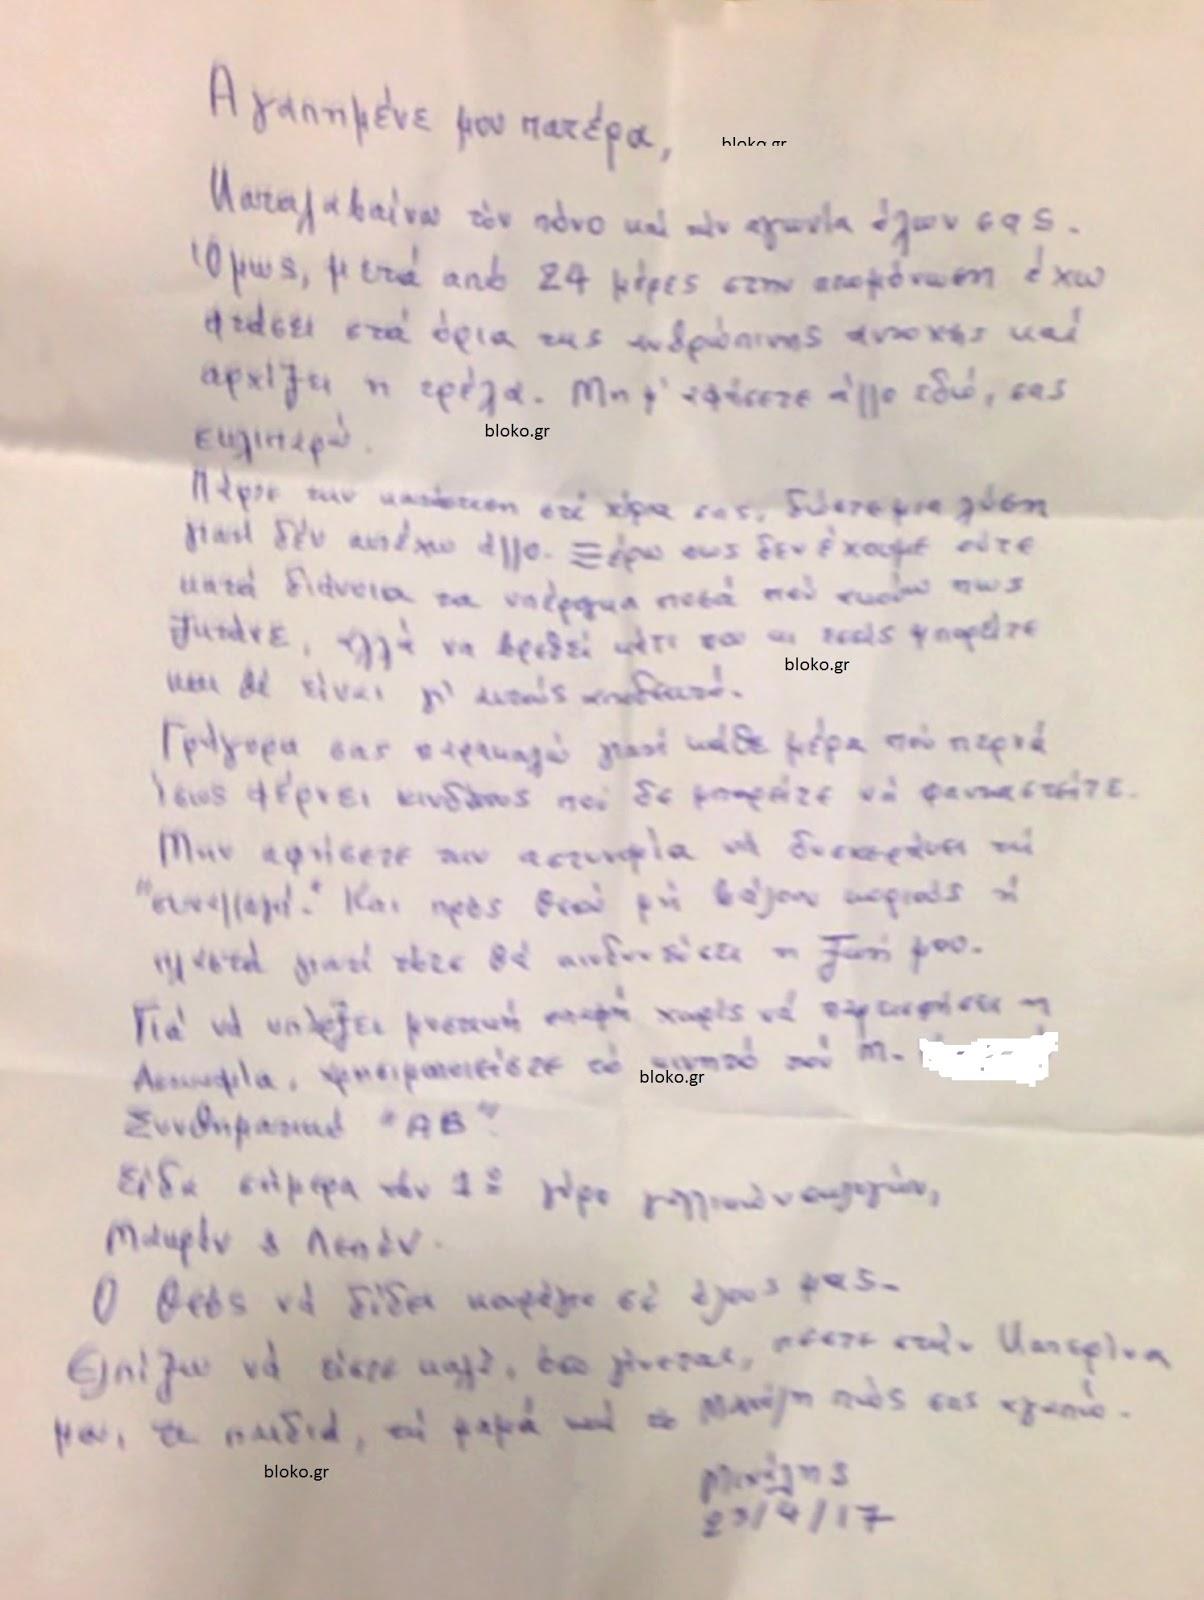 Αγαπημένε μου πατέρα,
bloko.gr
Καταλαβαίνω τόν πόνο καί τήν αγωνία όλων σας.
Όμως, μετά από 24 μέρες στην απομόνωση έχω
φτάσει στά όρια της ανθρώπινης αντοχής καί
αρχίζει η τρέλα. Μη μ' αφήσετε άλλο εδώ, σας
bloko.gr
εκλιπαρώ.
Πάρτε την κατάσταση στά χέρια σας, δώστε μια λύση
γιατί δέν αντέχω άλλο. Ξέρω πως δεν έχουμε ούτε
κατά διάνοια τα υπέρογκα ποσά πού πως
ζητάνε, αλλά να βρεθεί κάτι που κι εσείς μπορείτε
bloko.gr
και θά είναι γι' αυτούς αποδεκτό.
Γρήγορα σας παρακαλώ γιατί κάθε μέρα πού περνά
ίσως φέρνει κινδύνους πού δε μπορείτε νά φανταστείτε.
Μην αφήσετε την αστυνομία νά δυσκολέψει τή
"συναλλαγή." Και πρός Θεού μή βάλουν κοριούς ή
πλαστά γιατί τότε θά κινδυνεύσει η ζωή μου.
Γιά νά υπάρξει μυστική επαφή χωρίς νά παρεισφρήσει η
Αστυνομία, χρησιμοποιείστε τό κινητό τού Μ.
bloko.gr
Συνθηματικό "ΑΒ".
Είδα σήμερα τόν 1º γύρο γαλλικών εκλογών,
Μακρόν & Λεπέν.
Ο Θεός νά δίδει κουράγιο σέ όλους μας.
Ελπίζω νά είστε καλά, όσο γίνεται, πέστε στήν Κατερίνα
μου, τα παιδιά, τή μαμά καί το Μανώλη πώς σας αγαπώ.
bloko.gr
Μιχάλης
23/4/17